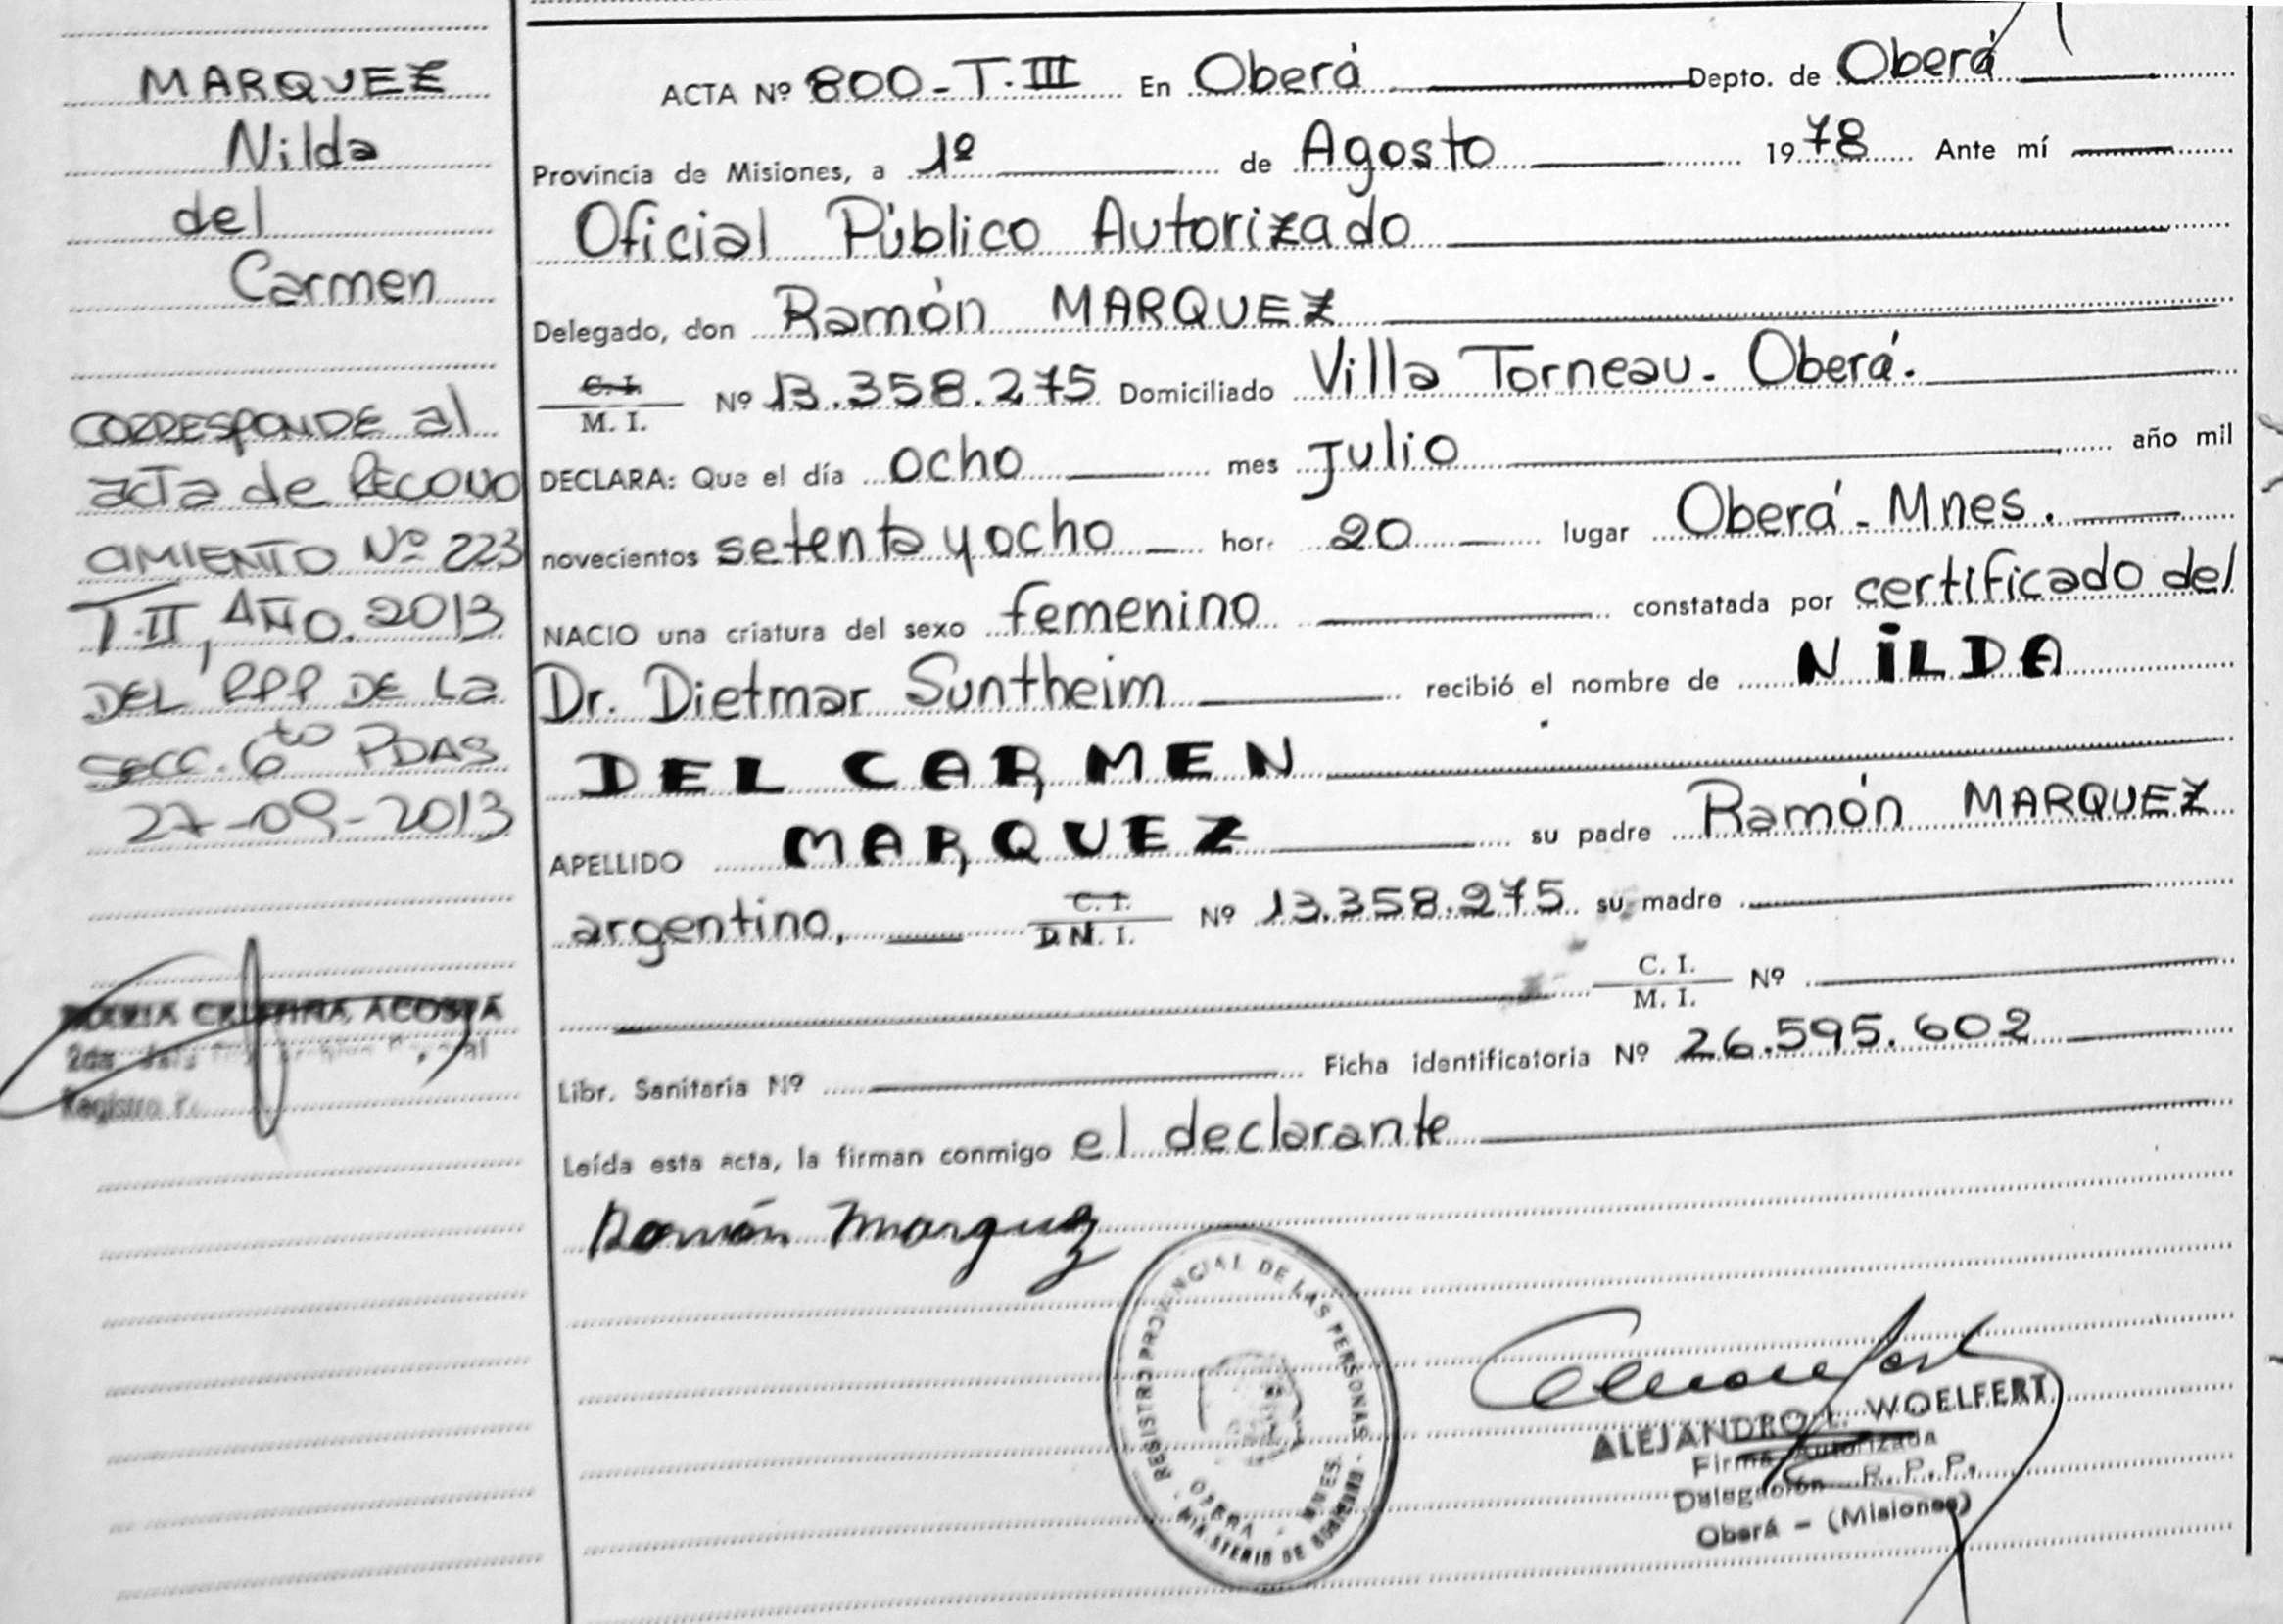 MARQUEZ
Nilda
del
Carmen
CORRESPONDE al
acta de RECONO
CIMIENTO Nº 223
T.II, AÑO. 2013
DEL RPP DE La
SECC. 6to PDAS
27-09-2013
MARIA CRISTINA ACOSTA
2da.
Registro
ACTA Nº 800-T.III En Oberá Depto. de Oberá
Provincia de Misiones, a 1º de Agosto 1978 Ante mí
Oficial Público Autorizado
Delegado, don Ramón MARQUEZ
C. I.
M. I. Nº 13.358.275 Domiciliado Villa Torneau. Oberá.
DECLARA: Que el día ocho mes Julio año mil
novecientos setenta y ocho hor. 20 lugar Oberá - Mnes.
NACIO una criatura del sexo femenino constatada por certificado del
Dr. Dietmar Suntheim recibió el nombre de NILDA
DEL CARMEN
APELLIDO MARQUEZ su padre Ramón MARQUEZ
argentino, C. I.
D.N. I. Nº 13.358.275 su madre
C. I.
M. I. Nº
Libr. Sanitaria Nº Ficha identificatoria Nº 26.595.602
Leída esta acta, la firman conmigo el declarante
Ramón Marquez
REGISTRO PROVINCIAL DE LAS PERSONAS
OBERA - MNES.
MINISTERIO DE GOBIERNO
ALEJANDRO L. WOELFERT
Firma Autorizada
Delegación R. P. P.
Oberá - (Misiones)